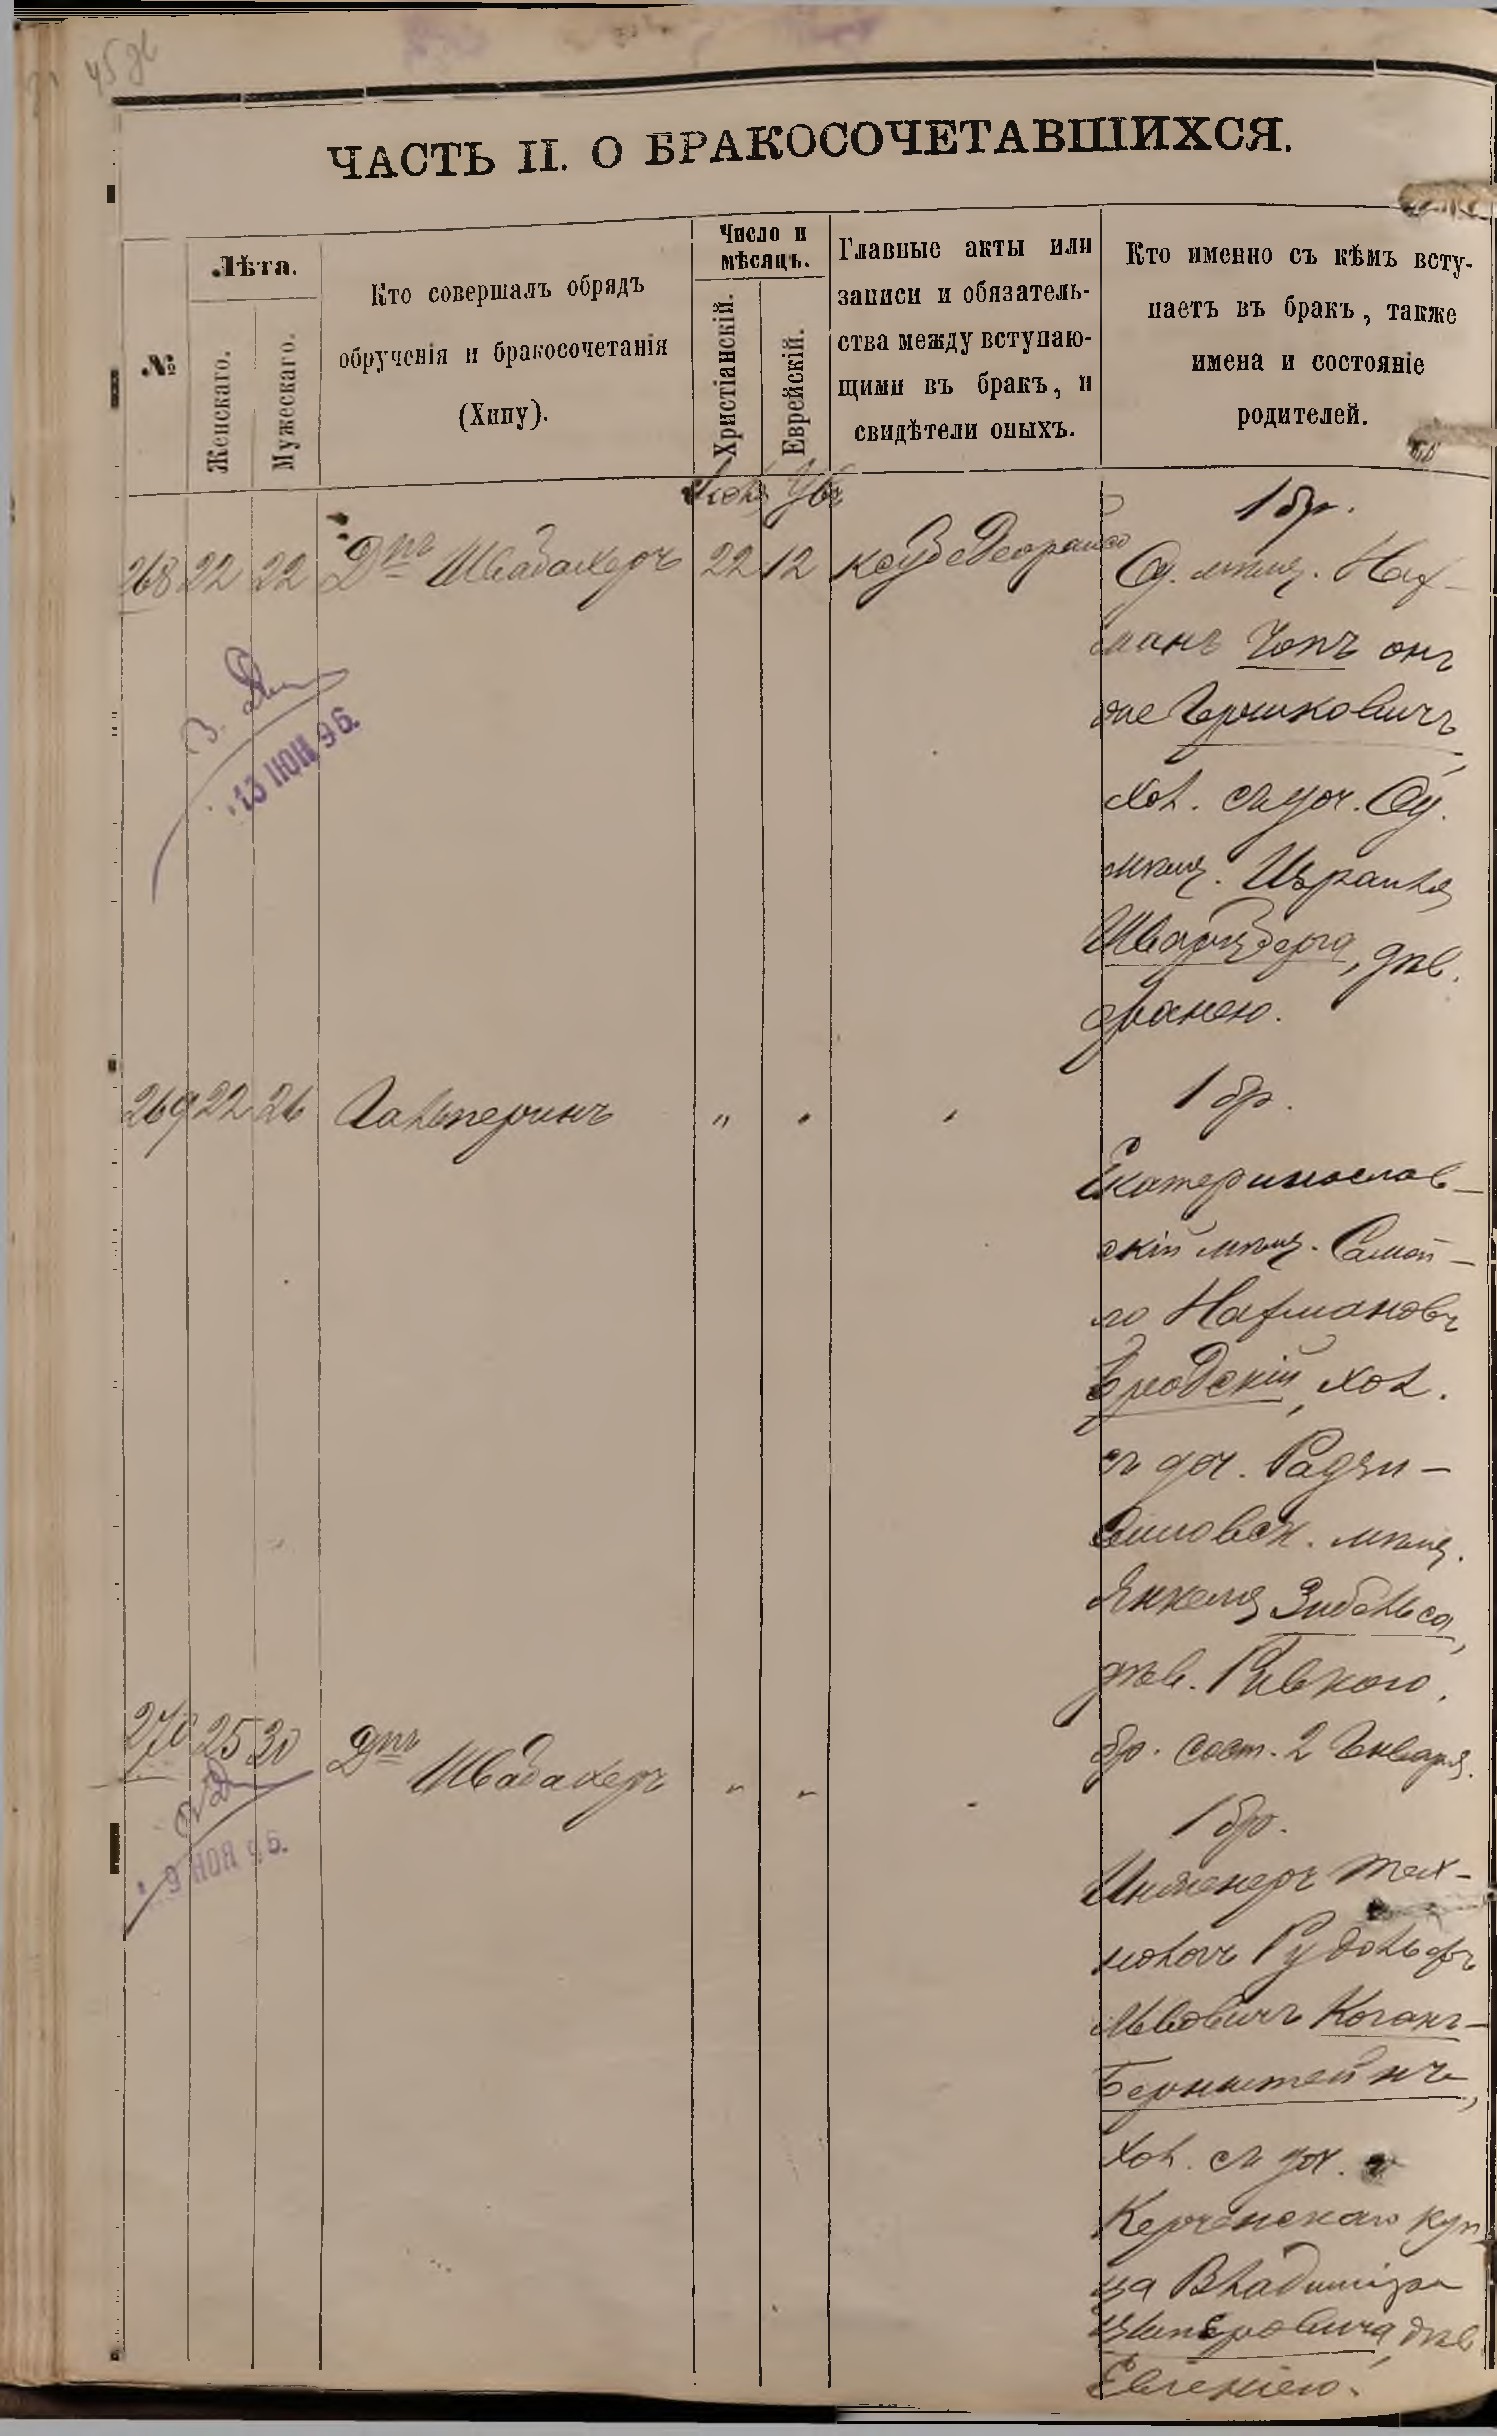 45 об
ЧАСТЬ II. О БРАКОСОЧЕТАВШИХСЯ.
№
Лѣта.
Женскаго.
Мужескаго.
Кто совершалъ обрядъ
обрученія и бракосочетанія
(Хипу).
Число и
мѣсяцъ.
Христіанскій.
Еврейскій.
Главные акты или
записи и обязатель-
ства между вступаю-
щими въ бракъ, и
свидѣтели оныхъ.
Кто именно съ кѣмъ всту-
паетъ въ бракъ, также
имена и состояніе
родителей.
268 22 22 Дръ Швабахеръ 22 12
1 бр.
Од. мѣщ. Нах-
манъ Чопъ онъ
же Гершковичъ,
хол. съ доч. Од.
мѣщ. Израиля
Шварцберга, дѣв.
13 ИЮН 96.
269 22 26 Гальперинъ " " "
1 бр.
Екатеринослав-
скій мѣщ. Самой-
ло Нахмановъ
Бродскій, хол.
съ доч. Радзи-
виловск. мѣщ.
Янкеля
дѣв. Ривкою.
бр. сост. 2 Января.
270 25 30 Дръ Швабахеръ " " "
9 НОЯ 96.
1 бр.
Инженеръ тех-
нологъ Рудольфъ
Львовичъ Коганъ-
Бернштейнъ,
хол. съ доч.
Керченскаго куп-
ца Владиміра
дѣв
Евгеніею.